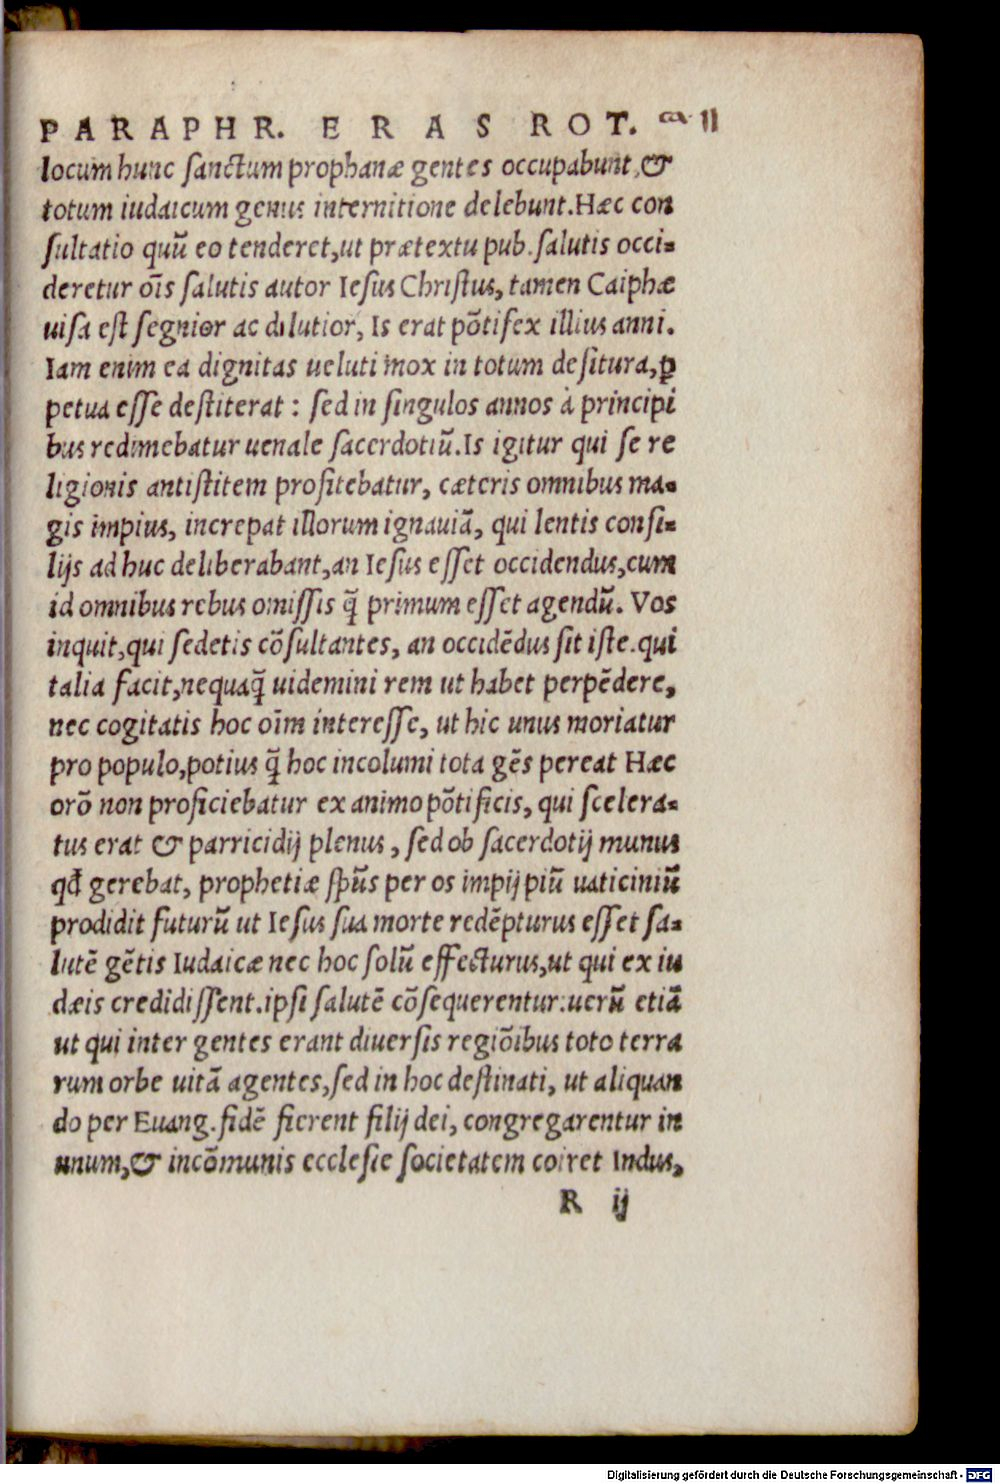 PARAPHR. ERAS ROT. ca 11
locum hunc sanctum prophanæ gentes occupabunt, &
totum iudaicum genus internitione delebunt. Hæc con
sultatio quū eo tenderet, ut prætextu pub. salutis occi=
deretur oīs salutis autor Iesus Christus, tamen Caiphæ
uisa est segnior ac dilutior, Is erat pōtifex illius anni.
Iam enim ea dignitas ueluti mox in totum desitura, ꝑ
petua esse destiterat : sed in singulos annos à principi
bus redimebatur uenale sacerdotiū. Is igitur qui se re
ligionis antistitem profitebatur, cæteris omnibus ma=
gis impius, increpat illorum ignauiā, qui lentis consi=
lijs ad huc deliberabant, an Iesus esset occidendus, cum
id omnibus rebus omissis q̄ primum esset agendū. Vos
inquit, qui sedetis cōsultantes, an occidēdus sit iste. qui
talia facit, nequaq̄ uidemini rem ut habet perpēdere,
nec cogitatis hoc oīm interesse, ut hic unus moriatur
pro populo, potius q̄ hoc incolumi tota gēs pereat Hæc
orō non proficiebatur ex animo pōtificis, qui scelera=
tus erat & parricidij plenus, sed ob sacerdotij munus
qđ gerebat, prophetiæ spūs per os impij piū uaticiniū
prodidit futurū ut Iesus sua morte redēpturus esset sa=
lutē gētis Iudaicæ nec hoc solū effecturus, ut qui ex iu
dæis credidissent. ipsi salutē cōsequerentur: uerū etiā
ut qui inter gentes erant diuersis regiōibus toto terra
rum orbe uitā agentes, sed in hoc destinati, ut aliquan
do per Euang. fidē fierent filij dei, congregarentur in
unum, & incōmunis ecclesie societatem coiret Indus,
R ij
Digitalisierung gefördert durch die Deutsche Forschungsgemeinschaft - DFG